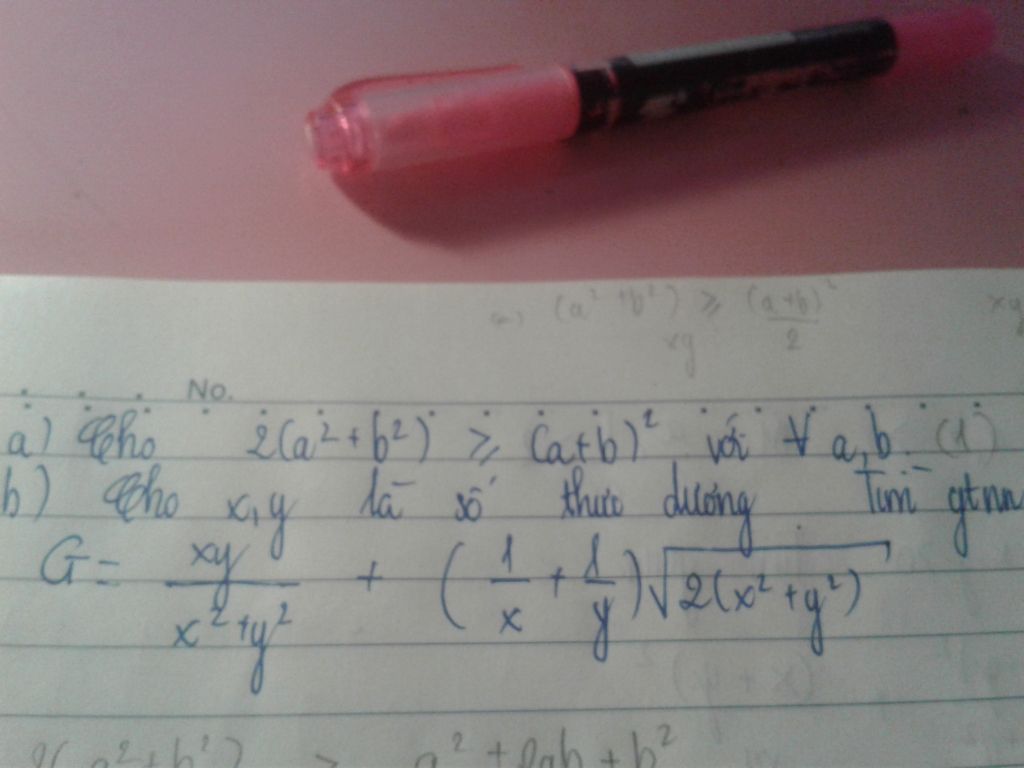 (a² + b²) ≥ (a+b)²/2
xy
No.
a) Cho 2(a² + b²) ≥ (a+b)² với ∀ a,b. (1)
b) Cho x,y là số thực dương Tìm gtnn
G = xy/(x²+y²) + (1/x + 1/y)√(2(x²+y²))
2(a²+b²) ≥ a² + 2ab + b²